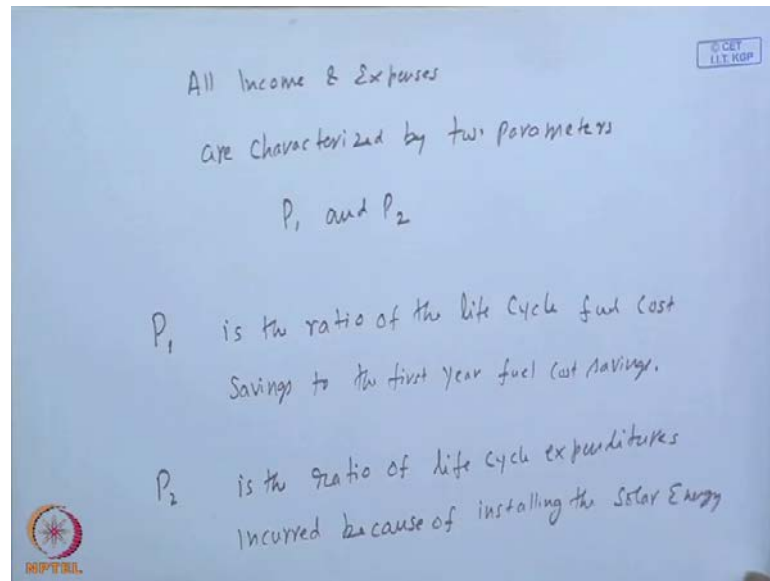 © CET
I.I.T. KGP
All Income & Expenses
are characterized by two parameters
P₁ and P₂
P₁ is the ratio of the life cycle fuel cost
Savings to the first year fuel cost savings.
P₂ is the ratio of life cycle expenditures
Incurred because of installing the Solar Energy
NPTEL